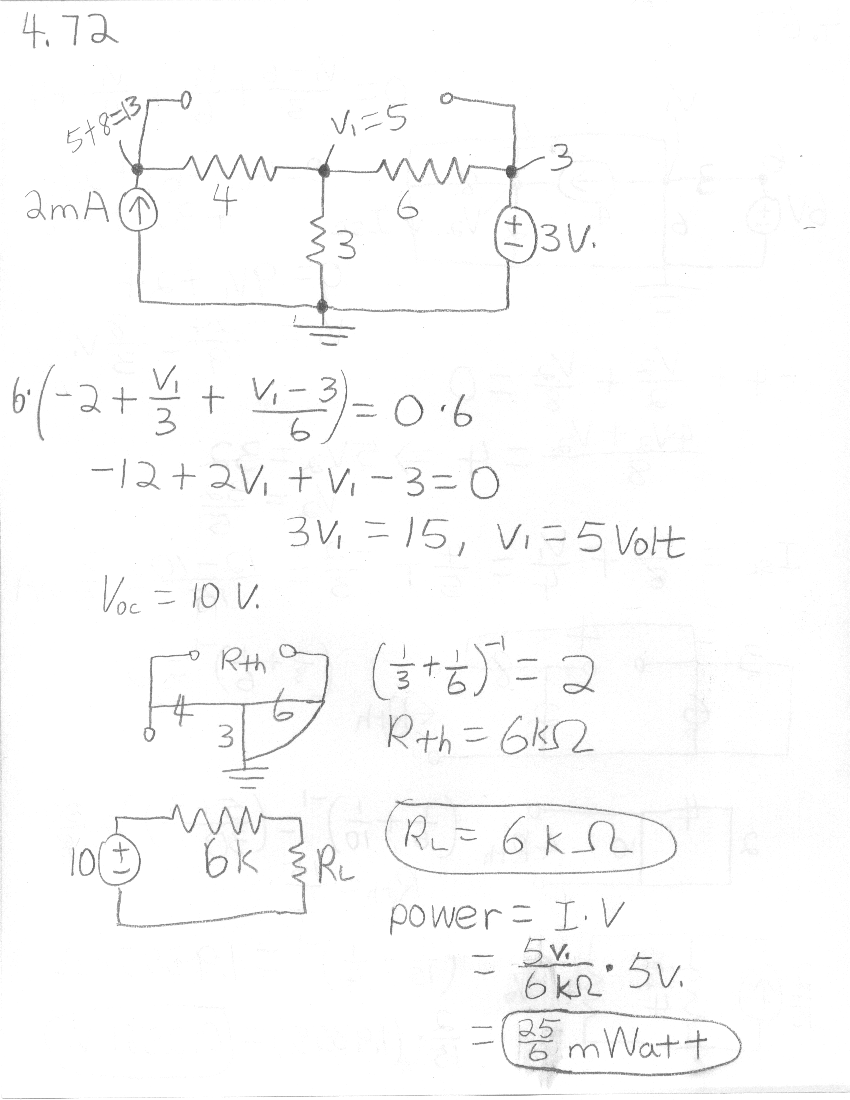 4.72
5+8=13
V₁=5
3
2mA
4
6
3
3V.
6·(-2 + V₁/3 + (V₁-3)/6) = 0·6
-12 + 2V₁ + V₁ - 3 = 0
3V₁ = 15, V₁ = 5 Volt
Voc = 10 V.
Rth
4
6
3
(1/3 + 1/6)⁻¹ = 2
Rth = 6kΩ
10
6k
RL
RL = 6 kΩ
power = I·V
= 5v./6kΩ · 5v.
= 25/6 mWatt